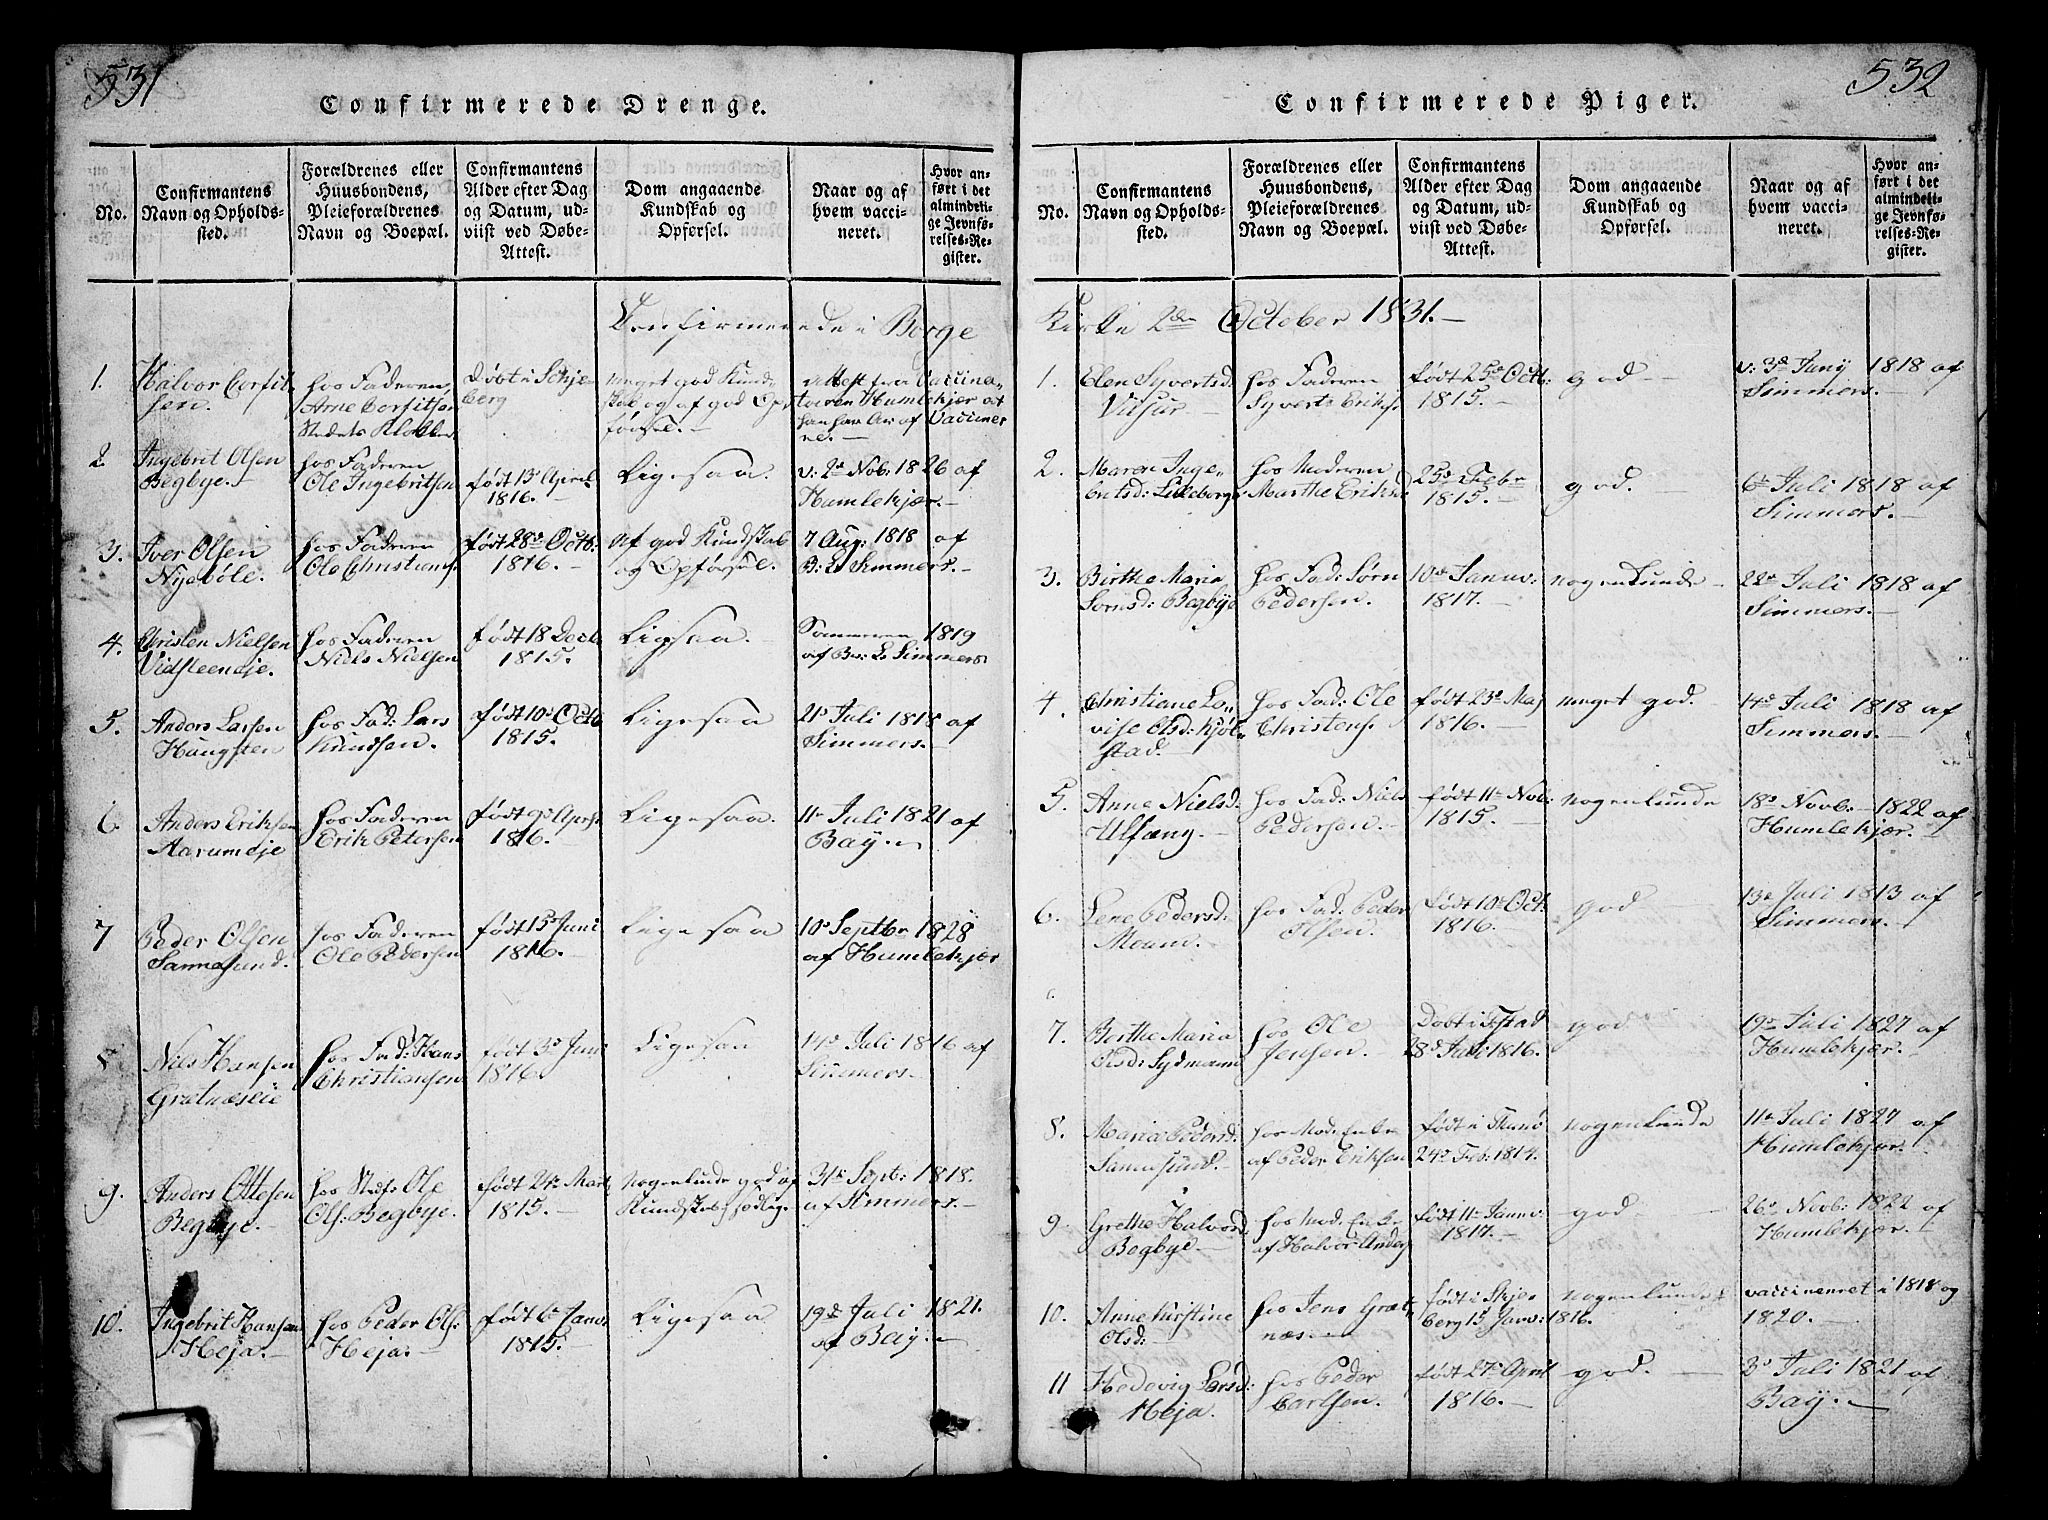 531
Confirmerede Drenge.
No.
Confirmantens
Navn og Opholds-
sted.
Forældrenes eller
Huusbondens,
Pleieforældrenes
Navn og Boepæl.
Confirmantens
Alder efter Dag
og Datum, ud-
viist ved Døbe-
Attest.
Dom angaaende
Kundskab og
Opførsel.
Naar og af
hvem vacci-
neret.
Hvor an-
ført i det
almindeli-
ge Jevnfø-
relses-Re-
gister.
Confirmerede i Borge
1.
Halvor Corfit
sen.
hos Faderen,
Arne Corfitsen
Stedets Klokker
Døbt i Schje-
berg
meget god Kund-
skab og af god Op-
førsel.-
Attest fra Vaccina-
teuren Humlekjær at
han har
af Vacciner
ne.-
2
Ingebrit Olsen
Begbye.-
hos Faderen
Ole Ingebritsen
født 13d April
1816.-
Ligesaa.
v: 2d Nov: 1826 af
Humlekjær.-
3.
Iver Olsen
Nyebøle.
hos Faderen
Ole Christians:
født 28d Octb:
1816.-
Af god Kundskab
og Opførsel.
7 Aug: 1818 af
B: L Simmers.-
4.
Christen Nielsen
Vidsteeneje.
hos Faderen
Niels Nielsen
født 18 Dec
1815.
Ligsaa.
Sommeren 1819
af Br: L Simmers
5.
Anders Larsen
Haugsten
hos Fad: Lars
Knudsen.
født 10d Octb
1815.
Ligesaa
21d Juli 1818 af
Simmers.-
6
Anders Eriksen
Aarumeje
hos Faderen
Erik Petersen
født 9d April
1816.
Ligesaa.
11te Juli 1821 af
Bay.-
7
Peder Olsen
Sannesund.
hos Faderen
Ole Pedersen
født 15d Juni
1816.
Ligesaa
10d Septbr 1828
af Humlekjær
8
Niels Hansen
Gratnæseie
hos Fad: Hans
Christiansen
født 3d Juni
1816.
Ligesaa
14d Juli 1816 af
Simmers.
9.
Anders Ottesen
Begbye.-
hos Stedf: Ole
Ols: Begbye.
født 24d Mart
1815.-
Nogenlunde god af
Kundskab
Sept: 1818.
af Simmers.-
10.
Ingebrit Hansen
Heja.-
hos Peder Ols:
Heja.-
født 6d Janv
1815.
Ligesaa
19de Juli 1821.
af Bay.-
532
Confirmerede Piger.
No.
Confirmantens
Navn og Opholds-
sted.
Forældrenes eller
Huusbondens,
Pleieforældrenes
Navn og Boepæl.
Confirmantens
Alder efter Dag
og Datum, ud-
viist ved Døbe-
Attest.
Dom angaaende
Kundskab og
Opførsel.
Naar og af
hvem vacci-
neret.
Hvor an-
ført i det
almindeli-
ge Jevnfø-
relses-Re-
gister.
Kirke 2den October 1831.-
1.
Elen Syvertsd.
hos Faderen
Syverts Eriks:
født 25d Octb:
1815.-
god -
v: 3d Junij 1818 af
Simmers.-
2.
Maren Inge-
britsd: Lilleborge
hos Moderen
Marthe Eriksd
25d Febr
1815.-
god.
6te Juli 1818 af
Simmers.-
3.
Birthe Maria
Sørnsd: Begbye
hos Fad: Sørn
Pedersen.
10de Januv:
1817.-
nogenlunde -
22de Juli 1818 af
Simmers.-
4.
Christiane Lo-
vise Olsd: Kjøl-
stad.-
hos Fad: Ole
Christens:
født 23d Maj
1816.-
meget god.
14d Juli 1818 af
Simmers.-
5.
Anne Nielsd:
Ulfæng.-
hos Fad: Niels
Pedersen.-
født 11te Nov:
1815.-
nogenlunde
18d Novb:- 1822 af
Humlekjær.-
6.
Lene Pedersd:
Moum.-
hos Fad: Peder
Olsen.
født 10d Oct:
1816.-
god
13d Juli 1813 af
Simmers.-
7.
Berthe Maria
Olsd: Sydmoum
hos Ole
Jensen.
Døbt i Fstad
28d Juli 1816.
god
19d Juli 1827 af
Humlekjær.-
8.
Maria Pedersd:
Sannesund.-
hos Mod: Enke
af Peder Eriksen
født i Thunø
24d Feb: 1814.
nogenlunde
11te Juli 1827 af
Humlekjær.-
9.
Grethe Halvorsd
Begbye.-
hos Mod: Enke
af Halvor Anders
født 11te Janv:
1817.-
god -
26d Novb: 1822 af
Humlekjær.-
10.
Anne Kirstine
Olsd:
hos Jens Græt-
næs.-
født i Skje-
berg 15 Janv: 1816.
nogenlunde
vaccineret i 1818 og
1820.-
11
Hedevig Larsd:
Heja.
hos Peder
Carlsen.
født 27d April
1816.-
god.
3d Juli 1821 af
Bay.-